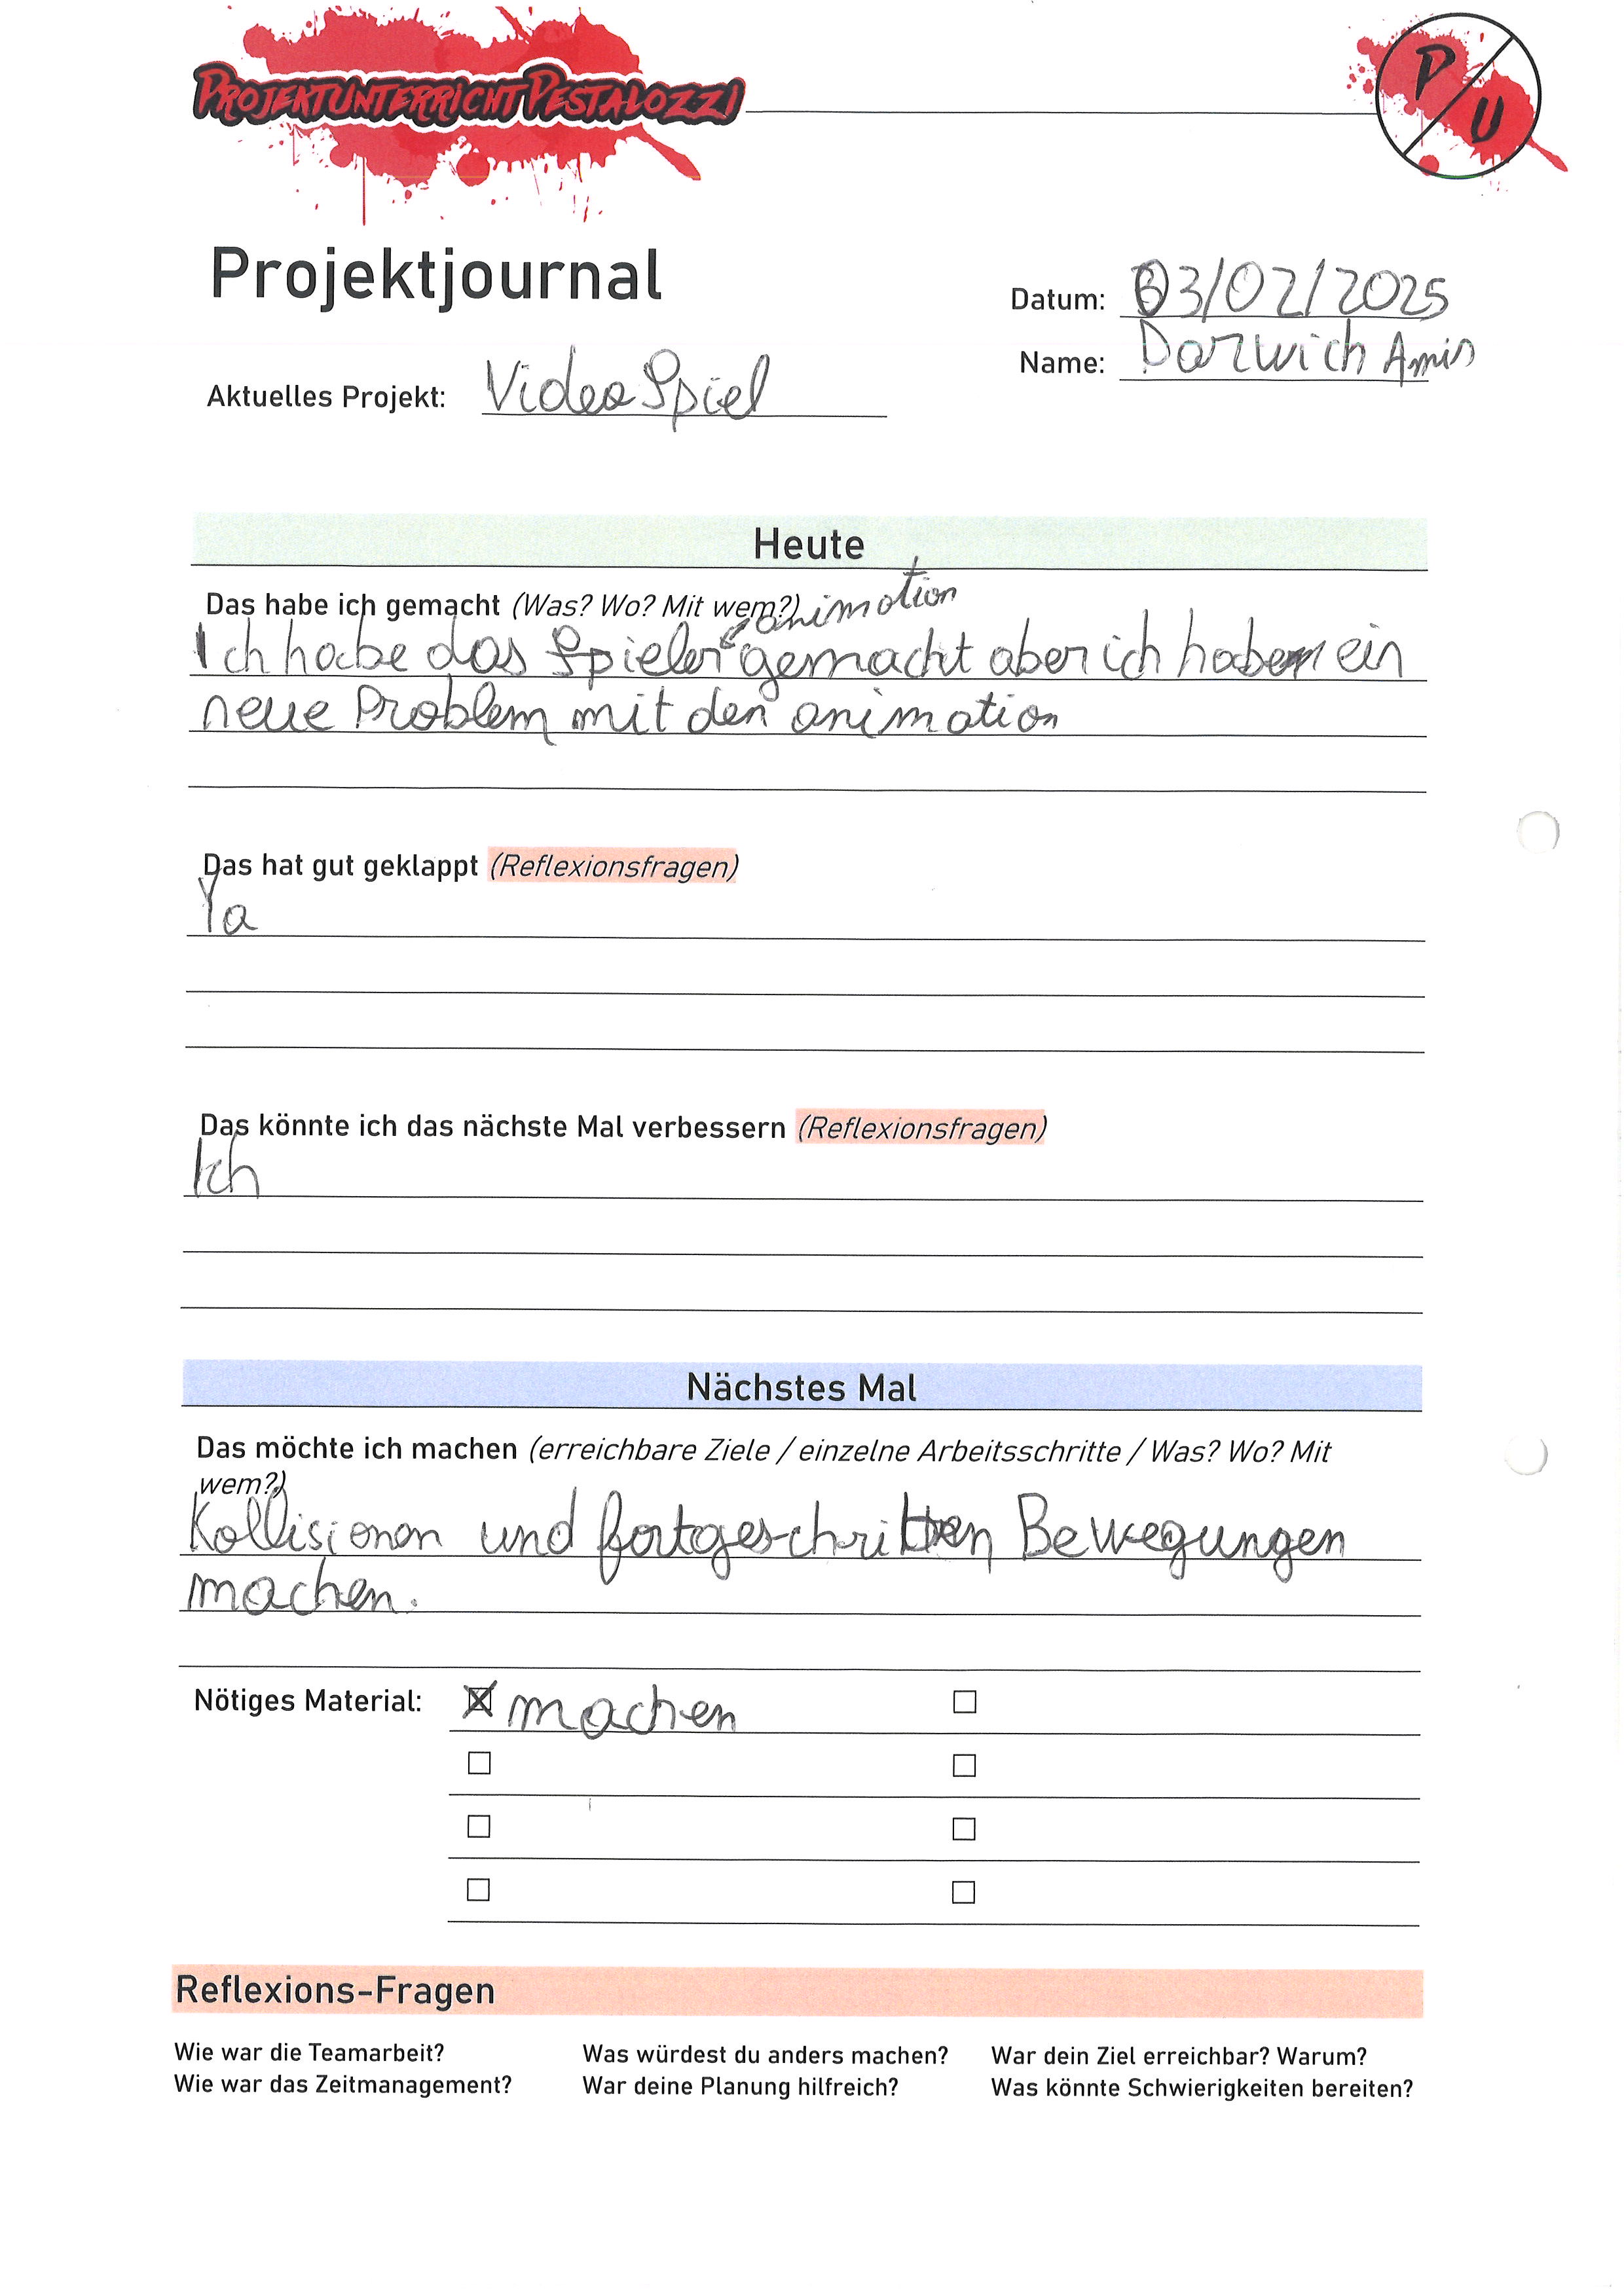 PROJEKTUNTERRICHT PESTALOZZI
P U
Projektjournal
Datum: 03/02/2025
Name: Darwich Amin
Aktuelles Projekt: Video Spiel
Heute
Das habe ich gemacht (Was? Wo? Mit wem?) animation
Ich habe das Spieler gemacht aber ich haben ein
neue Problem mit den animation
Das hat gut geklappt (Reflexionsfragen)
Ya
Das könnte ich das nächste Mal verbessern (Reflexionsfragen)
Ich
Nächstes Mal
Das möchte ich machen (erreichbare Ziele / einzelne Arbeitsschritte / Was? Wo? Mit
wem?)
Kollisionen und fortgeschritten Bewegungen
machen.
Nötiges Material: machen
Reflexions-Fragen
Wie war die Teamarbeit? Was würdest du anders machen? War dein Ziel erreichbar? Warum?
Wie war das Zeitmanagement? War deine Planung hilfreich? Was könnte Schwierigkeiten bereiten?